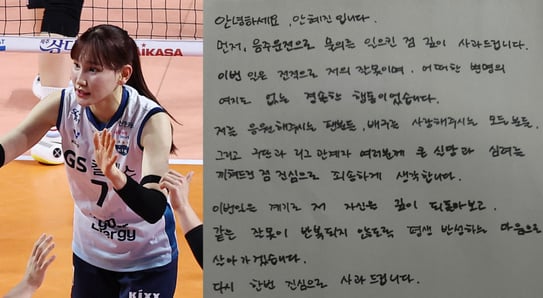 MIKASA
GS칼텍스
7
Energy
KIXX
안녕하세요, 안혜진입니다.
먼저, 음주운전으로 물의를 일으킨 점 깊이 사과드립니다.
이번 일은 전적으로 저의 잘못이며, 어떠한 변명의
여지도 없는 경솔한 행동이었습니다.
저를 응원해주시는 팬분들, 배구를 사랑해주시는 모든 분들,
그리고 구단과 리그 관계자 여러분께 큰 실망과 심려를
끼쳐드린 점 진심으로 죄송하게 생각합니다.
이번일을 계기로 저 자신을 깊이 되돌아보고,
같은 잘못이 반복되지 않도록 평생 반성하는 마음으로
살아가겠습니다.
다시 한번 진심으로 사과드립니다.